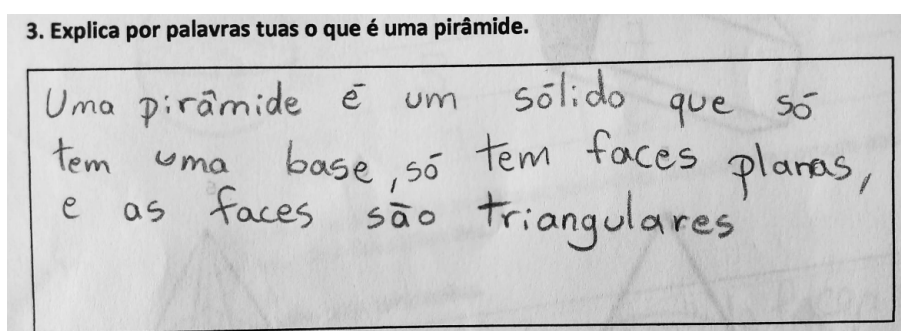 3. Explica por palavras tuas o que é uma pirâmide.
Uma pirâmide é um sólido que só
tem uma base, só tem faces planas,
e as faces são triangulares